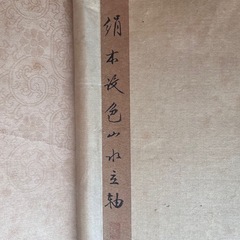 绢本设色山水立轴